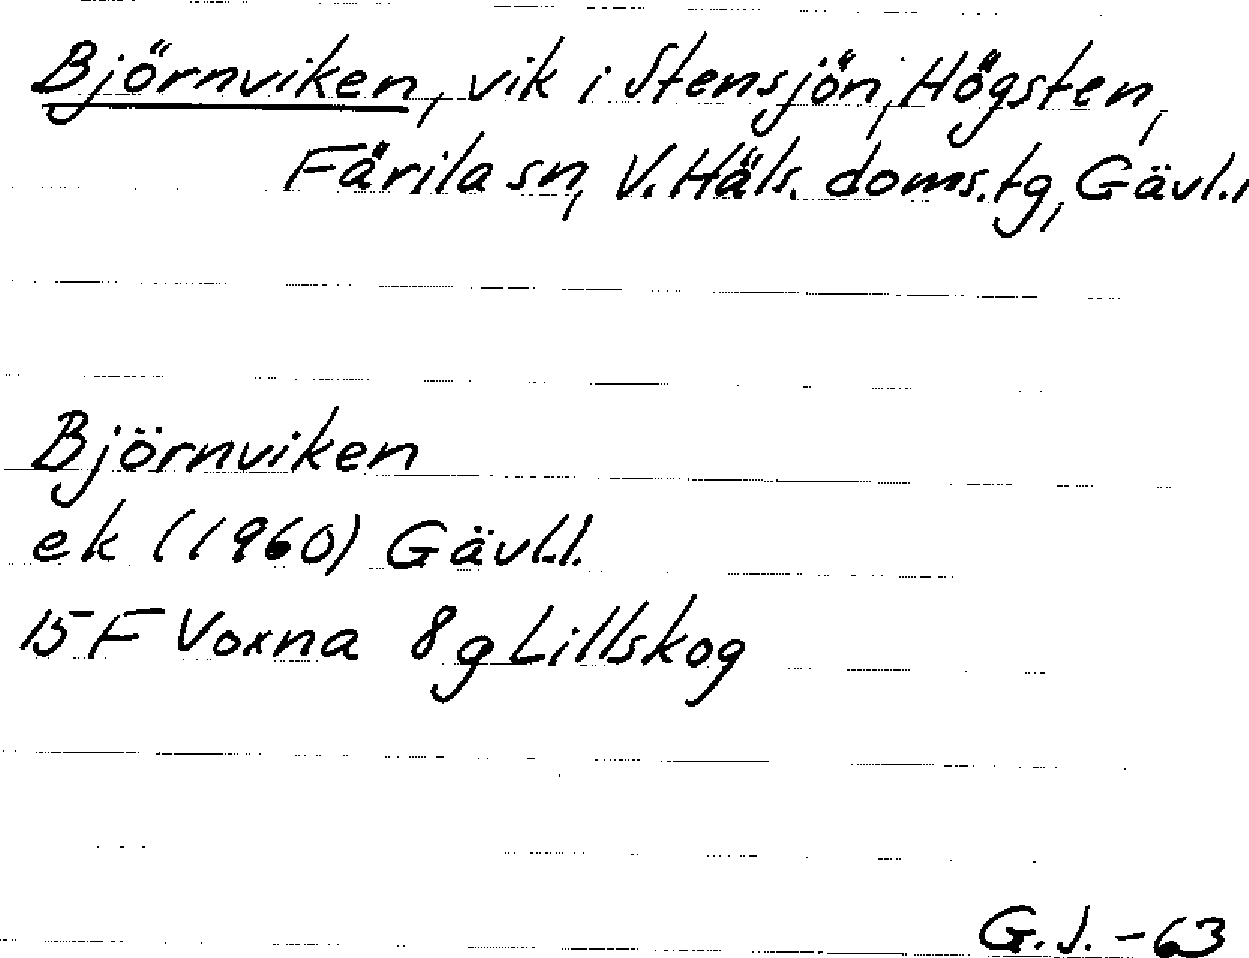 Björnviken, vik i Stensjön, Högsten,
Färila sn, V. Häls. doms. tg, Gävl.l
Björnviken
ek (1960) Gävl.l.
15 F Voxna 8 g Lillskog
G.J. -63